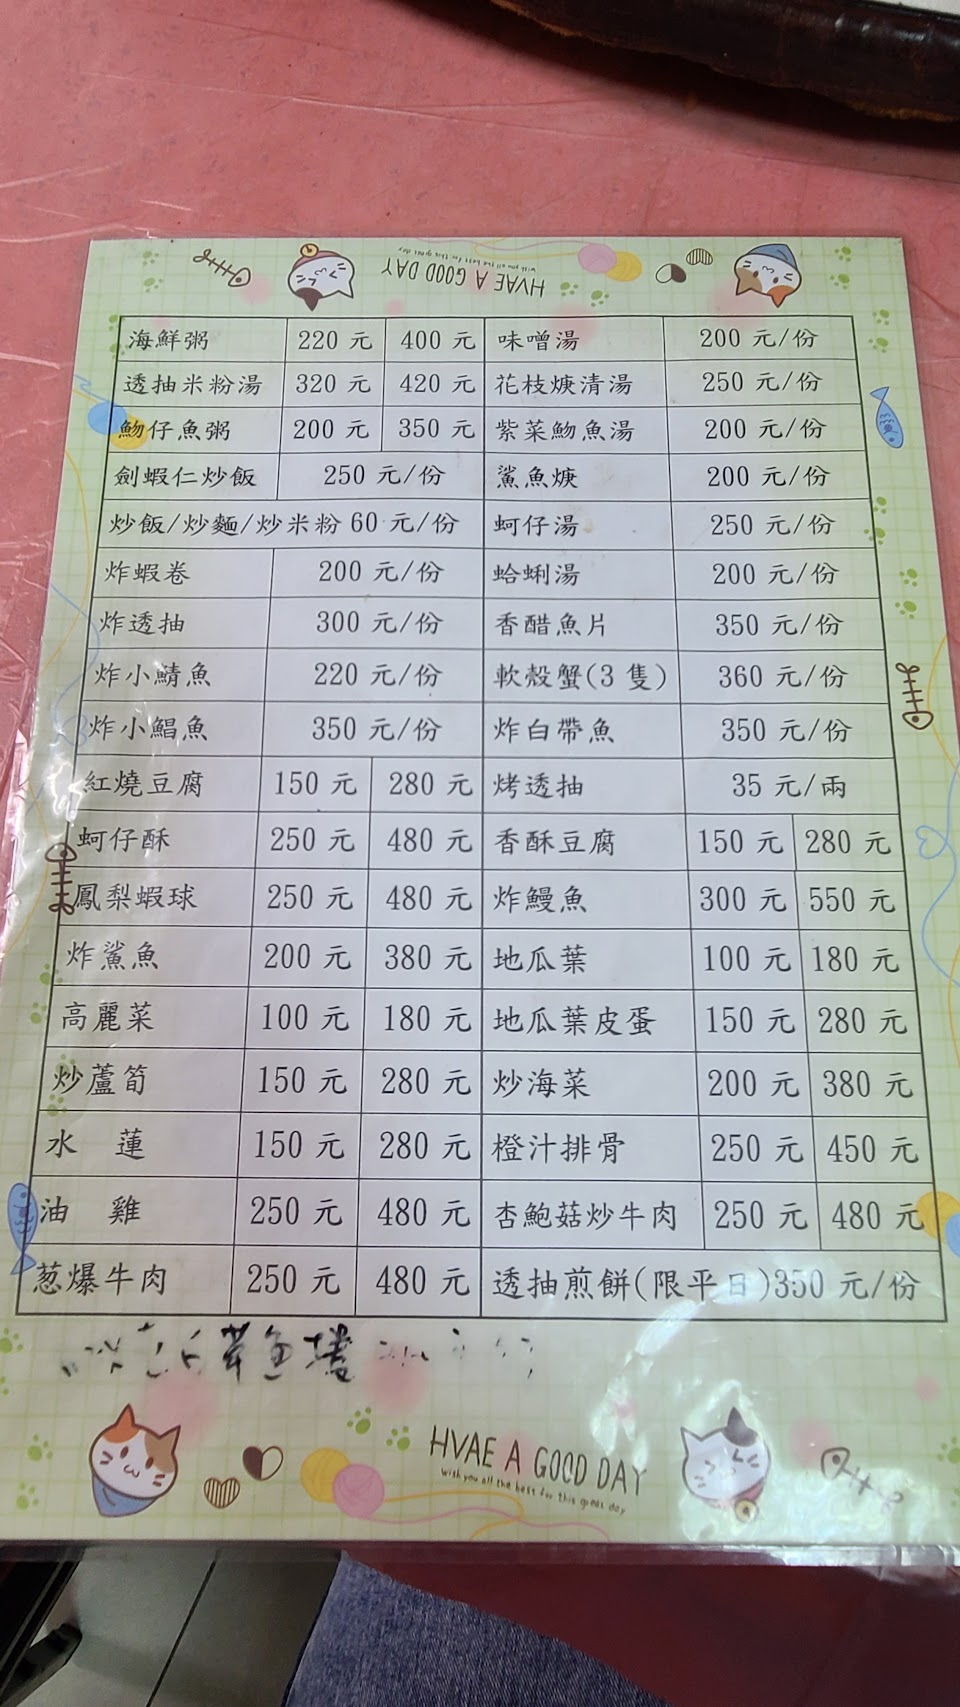 HVAE A GOOD DAY
wish you all the best for this great day
海鮮粥 220 元 400 元 味噌湯 200 元/份
透抽米粉湯 320 元 420 元 花枝焿清湯 250 元/份
魩仔魚粥 200 元 350 元 紫菜魩魚湯 200 元/份
劍蝦仁炒飯 250 元/份 鯊魚焿 200 元/份
炒飯/炒麵/炒米粉 60 元/份 蚵仔湯 250 元/份
炸蝦卷 200 元/份 蛤蜊湯 200 元/份
炸透抽 300 元/份 香醋魚片 350 元/份
炸小鯖魚 220 元/份 軟殼蟹(3 隻) 360 元/份
炸小鯧魚 350 元/份 炸白帶魚 350 元/份
紅燒豆腐 150 元 280 元 烤透抽 35 元/兩
蚵仔酥 250 元 480 元 香酥豆腐 150 元 280 元
鳳梨蝦球 250 元 480 元 炸鰻魚 300 元 550 元
炸鯊魚 200 元 380 元 地瓜葉 100 元 180 元
高麗菜 100 元 180 元 地瓜葉皮蛋 150 元 280 元
炒蘆筍 150 元 280 元 炒海菜 200 元 380 元
水 蓮 150 元 280 元 橙汁排骨 250 元 450 元
油 雞 250 元 480 元 杏鮑菇炒牛肉 250 元 480 元
葱爆牛肉 250 元 480 元 透抽煎餅(限平日)350 元/份
HVAE A GOOD DAY
wish you all the best for this great day